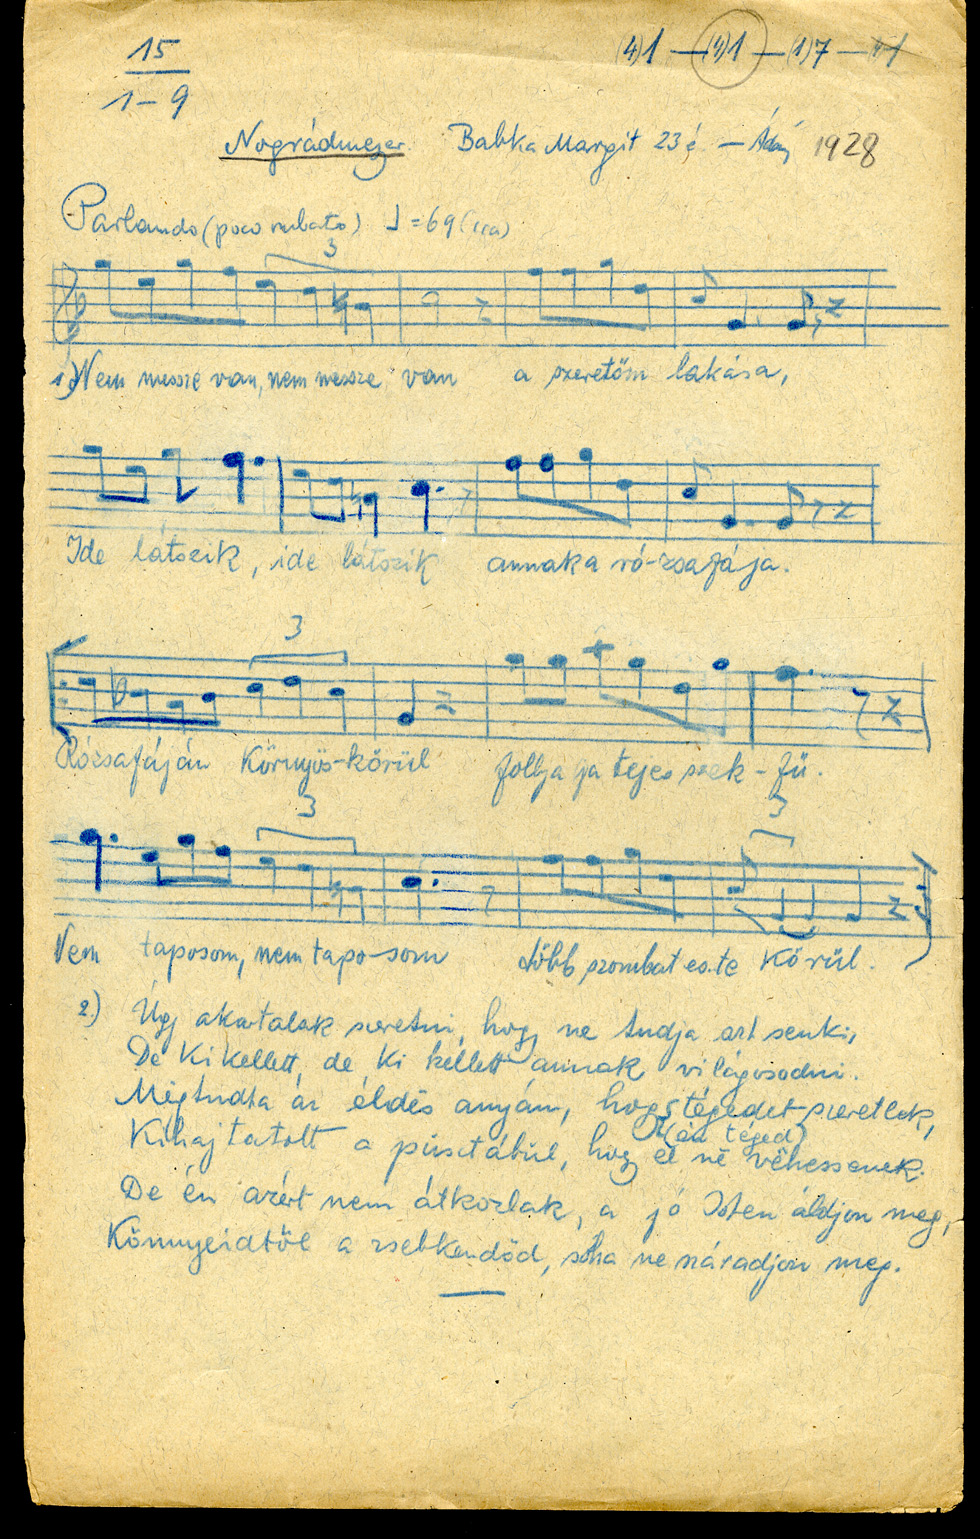 15
1-9
(4)1 — (4)1 — (1)7 —
Nográdmegyer Babka Margit 23 é — Ádám 1928
Parlando (poco rubato) ♩=69 (cca)
3
1) Nem messze van, nem messze van a szeretőm lakása,
Ide látszik, ide látszik annaka ró-zsafája.
3
Rózsafáján környös-körül follya ja tejes szek-fű.
3 3
Nem taposom, nem tapo-som több szombat es.te körül.
2.) Úgy akartalak szeretni, hogy ne tudja azt senki,
De ki kellett, de ki kellett annak világosodni.
Megtudta az édës anyám, hogy tégedet szeretlek,
(én téged)
Kihajtatott a pusztábul, hogy el në vëhessenek.
De én azért nem átkozlak, a jó Isten áldjon meg,
Könnyeidtől a zsebkendőd, soha ne száradjon meg.